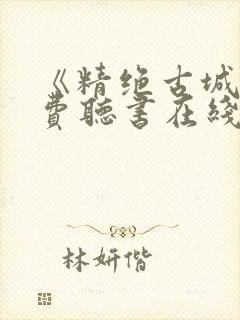 《精绝古城
费聽书在綫
林妍偕